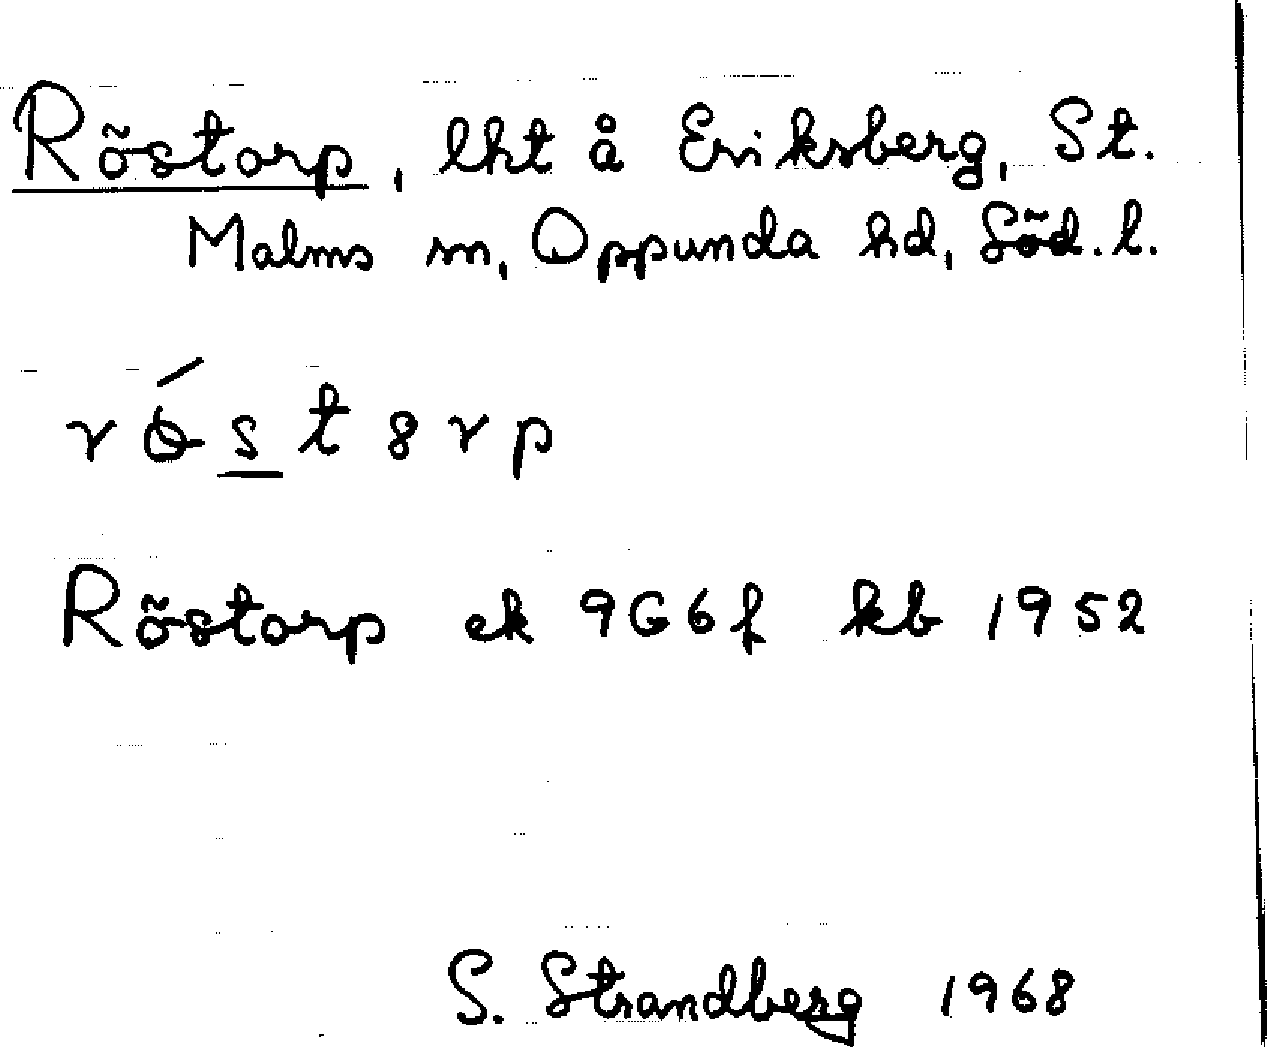 Röstorp, lht å Eriksberg, St.
Malms sn, Oppunda hd, Söd. l.
Röstorp ek 9G6f kb 1952
S. Strandberg 1968